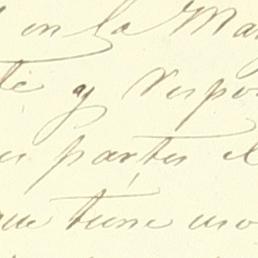 en la Ma
te y respo
es partes el
que tiene uso